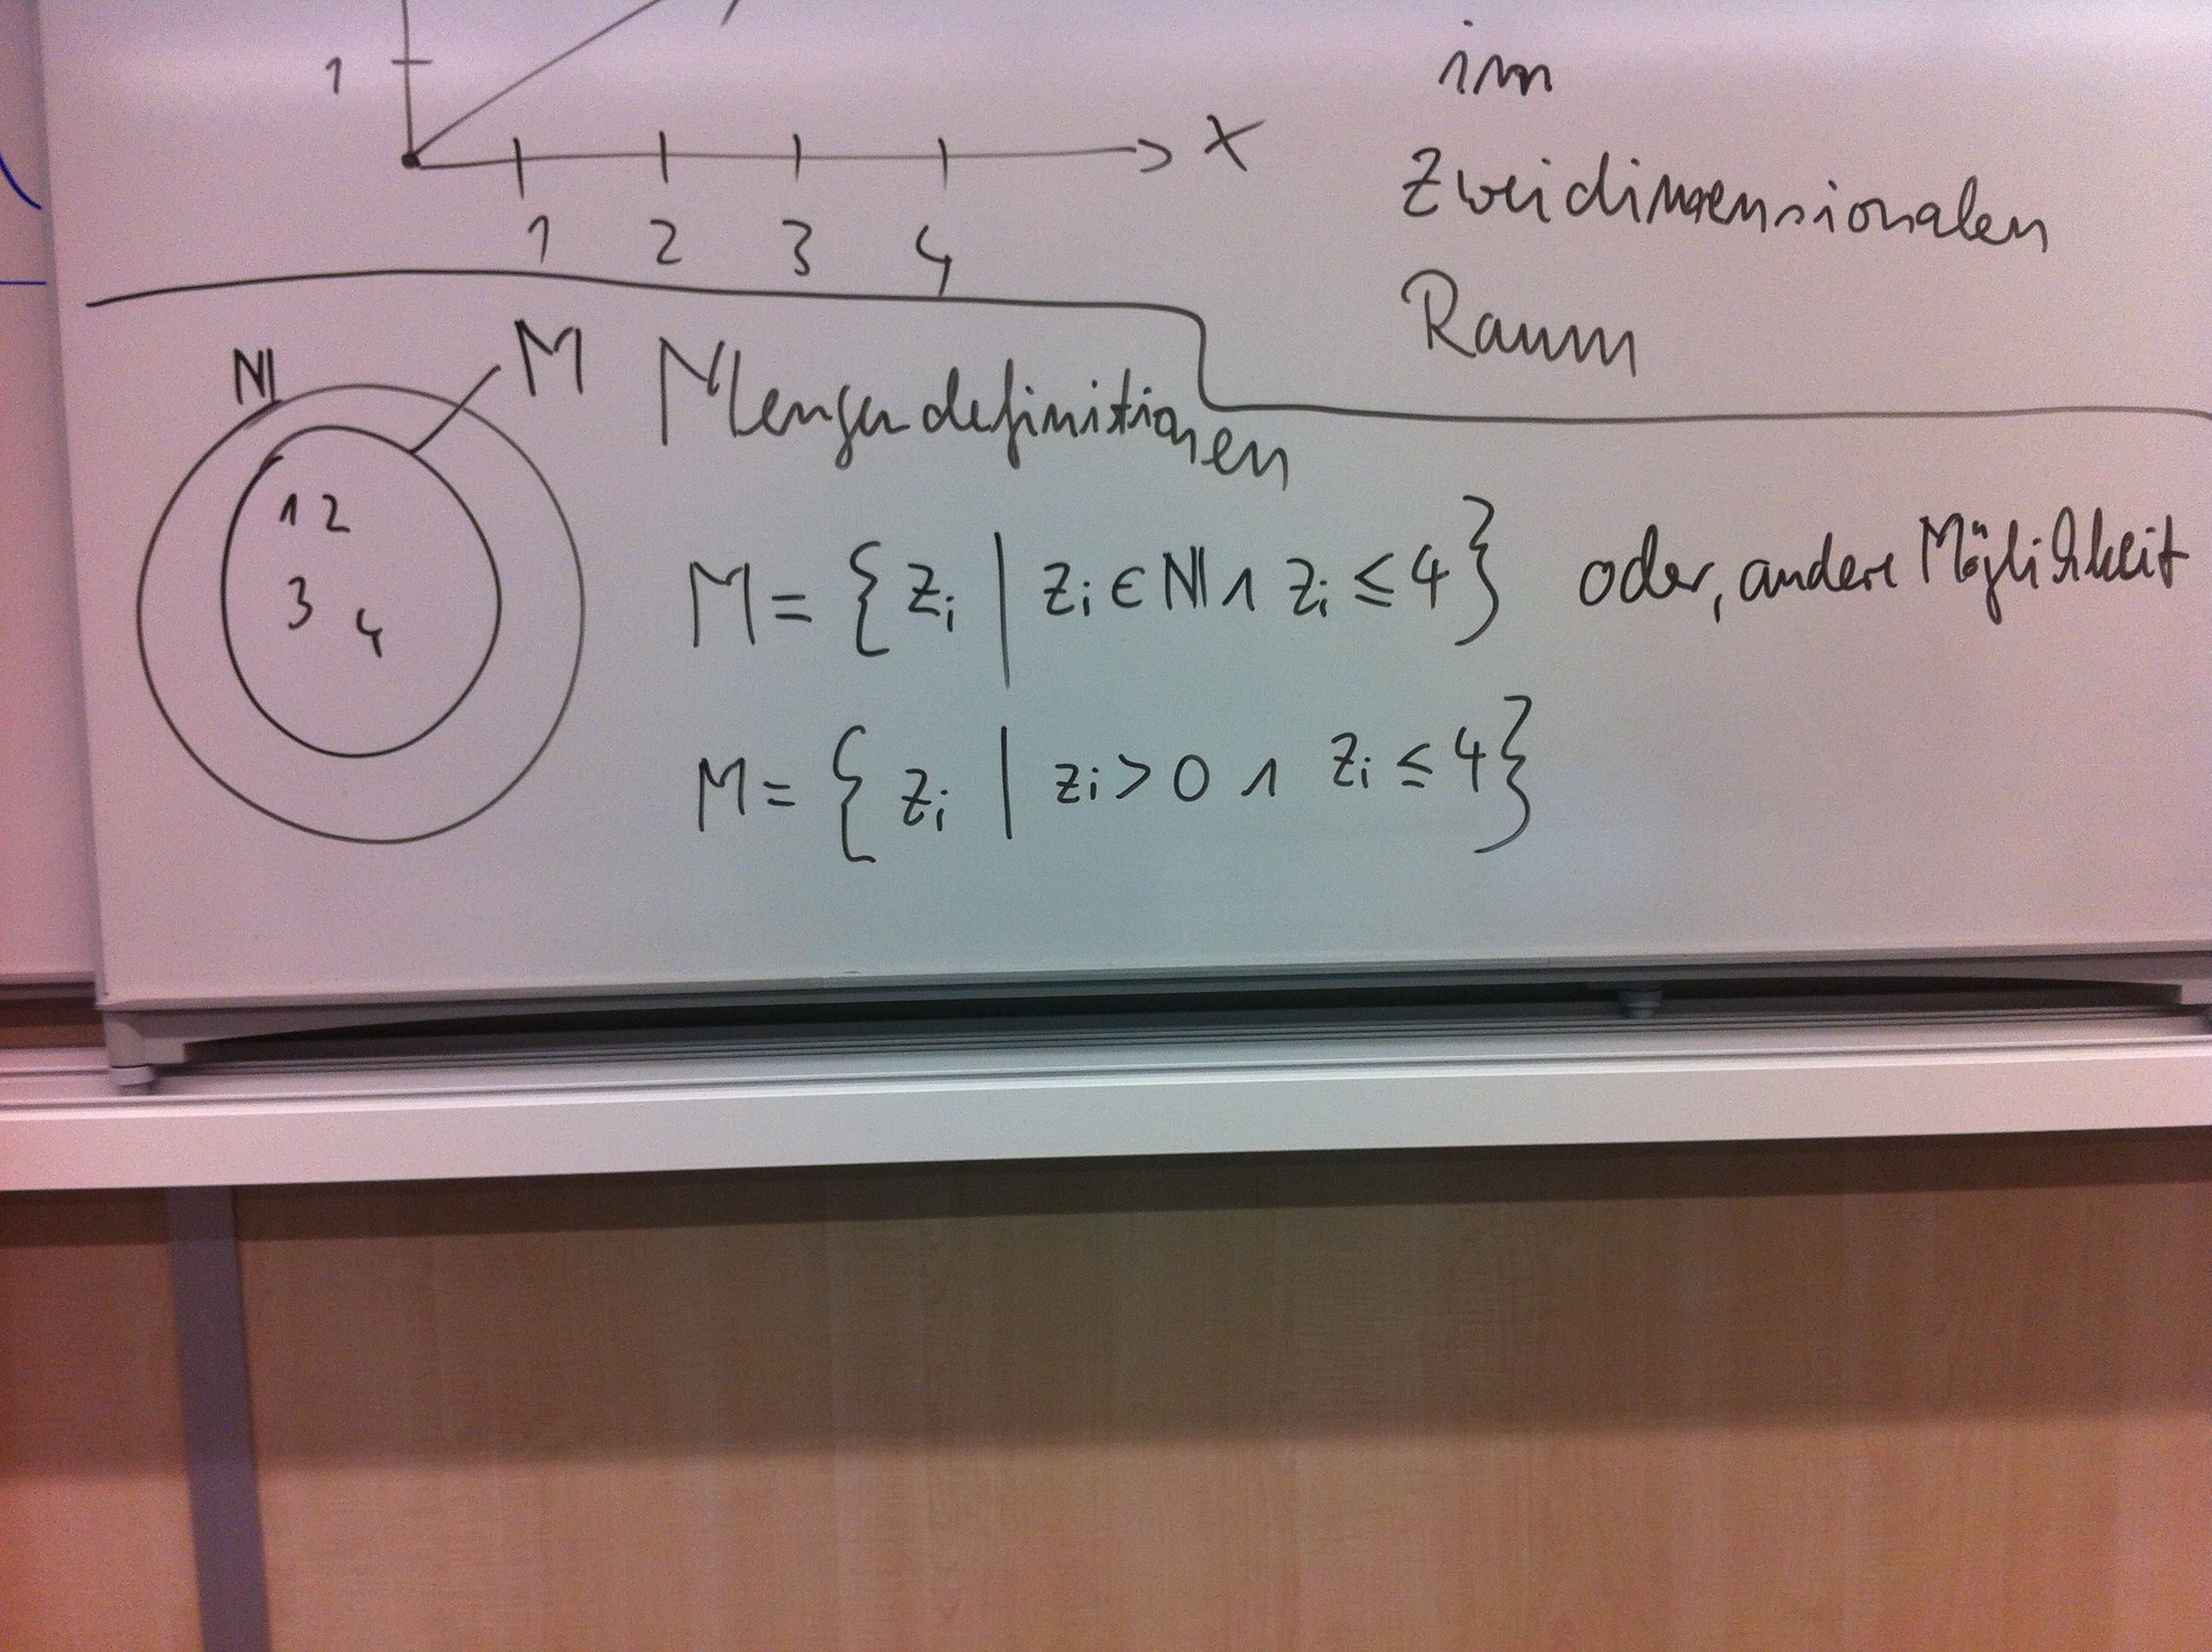 1
im
x
zweidimensionalen
1 2 3 4
Raum
ℕ
M
Mengendefinitionen
1 2
3 4
M = { zᵢ | zᵢ ∈ ℕ ∧ zᵢ ≤ 4 } oder, andere Möglichkeit
M = { zᵢ | zᵢ > 0 ∧ zᵢ ≤ 4 }